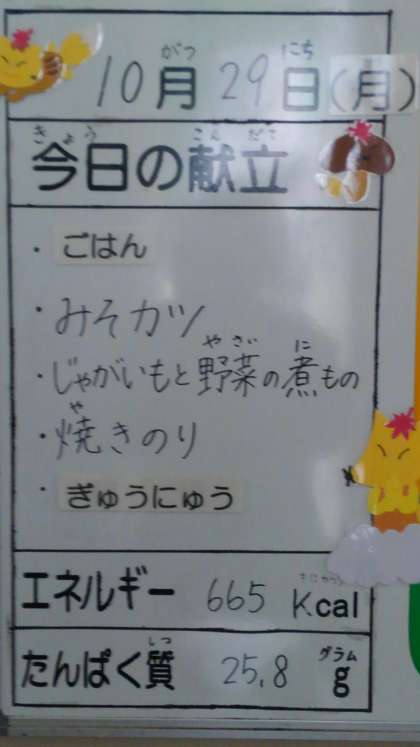 10月29日(月)
今日の献立
・ごはん
・みそカツ
・じゃがいもと野菜の煮もの
・焼きのり
・ぎゅうにゅう
エネルギー 665 Kcal
たんぱく質 25.8 g